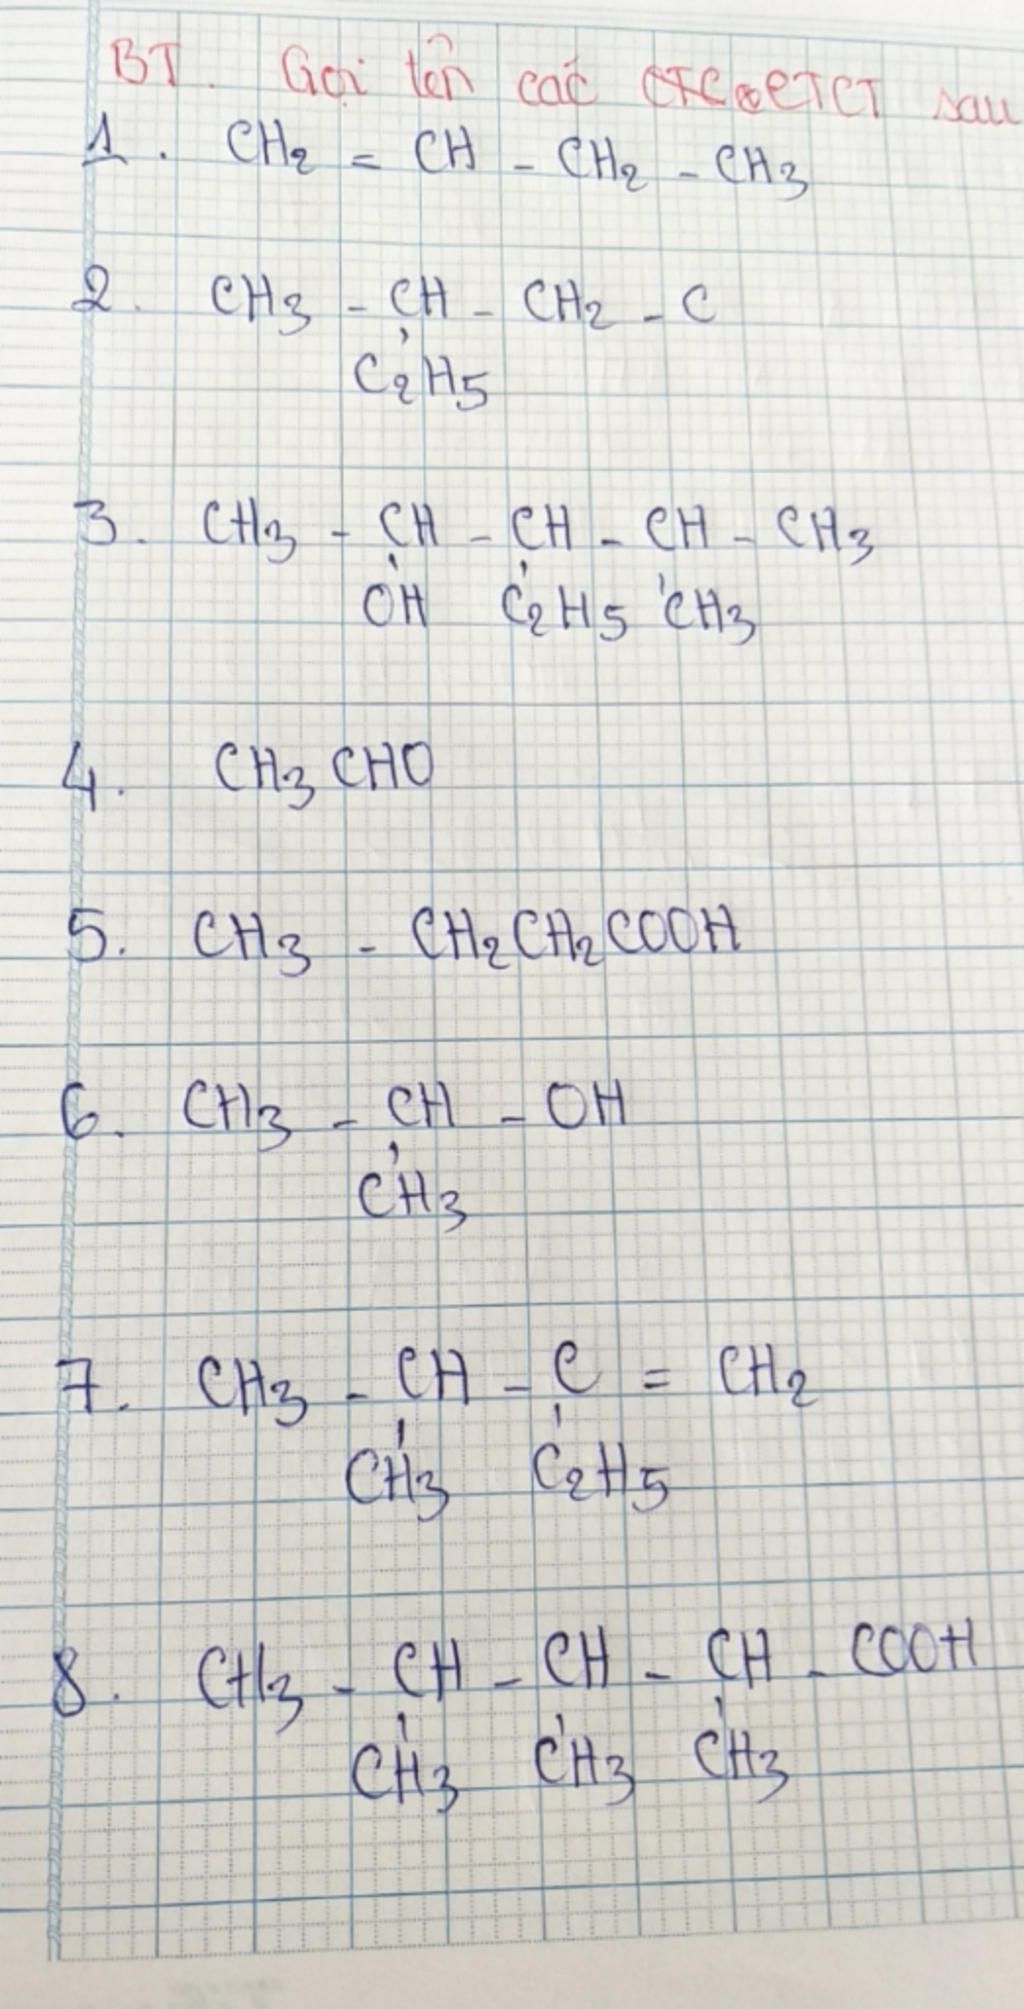 BT. Gọi tên các CTCT sau
1. CH2 = CH - CH2 - CH3
2. CH3 - CH - CH2 - C
C2H5
3. CH3 - CH - CH - CH - CH3
OH C2H5 CH3
4. CH3CHO
5. CH3 - CH2CH2COOH
6. CH3 - CH - OH
CH3
7. CH3 - CH - C = CH2
CH3 C2H5
8. CH3 - CH - CH - CH - COOH
CH3 CH3 CH3